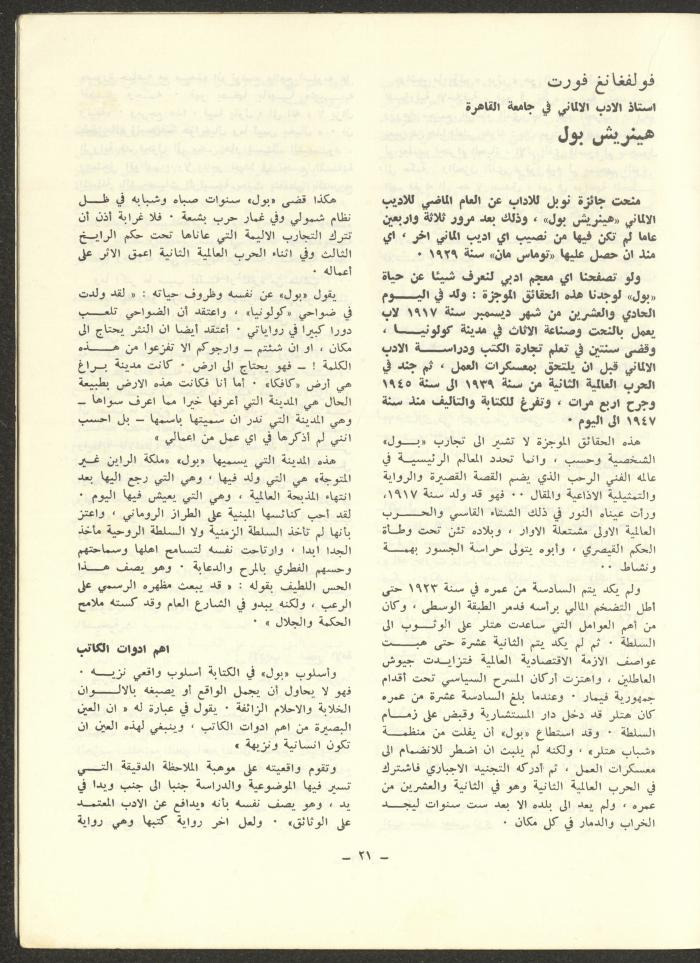 فولفغانغ فورت
استاذ الادب الالماني في جامعة القاهرة
هينريش بول
منحت جائزة نوبل للاداب عن العام الماضي للأديب
الالماني «هينريش بول» ، وذلك بعد مرور ثلاثة واربعين
عاما لم تكن فيها من نصيب اي اديب الماني اخر ، اي
منذ ان حصل عليها «توماس مان» سنة ١٩٢٩ .
ولو تصفحنا اي معجم ادبي لنعرف شيئا عن حياة
«بول» لوجدنا هذه الحقائق الموجزة : ولد في اليـــوم
الحادي والعشرين من شهر ديسمبر سنة ١٩١٧ لاب
يعمل بالنحت وصناعة الاثاث في مدينة كولونيـــا ،
وقضى سنتين في تعلم تجارة الكتب ودراســـة الادب
الالماني قبل ان يلتحق بمعسكرات العمل ، ثم جند في
الحرب العالمية الثانية من سنة ١٩٣٩ الى سنة ١٩٤٥
وجرح اربع مرات ، وتفرغ للكتابة والتأليف منذ سنة
١٩٤٧ الى اليوم .
هذه الحقائق الموجزة لا تشير الى تجارب «بـــول»
الشخصية وحسب ، وانما تحدد المعالم الرئيسية في
عالمه الفني الرحب الذي يضم القصة القصيرة والرواية
والتمثيلية الاذاعية والمقال . . فهو قد ولد سنة ١٩١٧،
ورأت عيناه النور في ذلك الشتاء القاسي والحـــرب
العالمية الاولى مشتعلة الاوار ، وبلاده تئن تحت وطـأة
الحكم القيصري ، وأبوه يتولى حراسة الجسور بهمـــة
ونشاط . .
ولم يكد يتم السادسة من عمره في سنة ١٩٢٣ حتى
أطل التضخم المالي برأسه فدمر الطبقة الوسطى ، وكان
من أهم العوامل التي ساعدت هتلر على الوثـــوب الى
السلطة . ثم لم يكد يتم الثانية عشرة حتى هبـــت
عواصف الازمة الاقتصادية العالمية فتزايـدت جيوش
العاطلين ، واهتزت أركان المسرح السياسي تحت أقدام
جمهورية فيمار . وعندما بلغ السادسة عشرة من عمره
كان هتلر قد دخل دار المستشارية وقبض على زمـــام
السلطة . وقد استطاع «بول» أن يفلت من منظمـــة
«شباب هتلر» ، ولكنه لم يلبث ان اضطر للانضمام الى
معسكرات العمل ، ثم أدركه التجنيد الاجباري فاشترك
في الحرب العالمية الثانية وهو في الثانية والعشرين من
عمره ، ولم يعد الى بلده الا بعد ست سنوات ليجـــد
الخراب والدمار في كل مكان .
هكذا قضى «بول» سنوات صباه وشبابه في ظـــل
نظام شمولي وفي غمار حرب بشعة . فلا غرابة اذن أن
تترك التجارب الاليمة التي عاناها تحت حكم الرايـــخ
الثالث وفي اثناء الحرب العالمية الثانية اعمق الاثر على
أعماله .
يقول «بول» عن نفسه وظروف حياته : « لقد ولدت
في ضواحي «كولونيا» ، واعتقد أن الضواحي تلعـــب
دورا كبيرا في رواياتي . أعتقد ايضا ان النثر يحتاج الى
مكان ، او ان شئتم ــ وارجوكم الا تفزعوا من هـــذه
الكلمة ! ــ فهو يحتاج الى ارض . كانت مدينة بـــراغ
هي أرض «كافكا» . أما أنا فكانت هذه الارض بطبيعة
الحال هي المدينة التي أعرفها خيرا مما اعرف سواها ــ
وهي المدينة التي ندر ان سميتها باسمها ــ بل احسب
انني لم اذكرها في اي عمل من اعمالي »
هذه المدينة التي يسميها «بول» «ملكة الراين غـــير
المتوجة» هي التي ولد فيها ، وهي التي رجع اليها بعد
انتهاء المذبحة العالمية ، وهي التي يعيش فيها اليوم .
لقد أحب كنائسها المبنية على الطراز الروماني ، واعتز
بأنها لم تأخذ السلطة الزمنية ولا السلطة الروحية مأخذ
الجد ابدا ، وارتاحت نفسه لتسامح اهلها وسماحتهم
وحسهم الفطري بالمرح والدعابة . وهو يصف هـــذا
الحس اللطيف بقوله : « قد يبعث مظهره الرسمي على
الرعب ، ولكنه يبدو في الشارع العام وقد كسته ملامح
الحكمة والجلال » .
اهم ادوات الكاتب
وأسلوب «بول» في الكتابة أسلوب واقعي نزيـــه .
فهو لا يحاول أن يجمل الواقع أو يصبغه بالالـــوان
الخلابة والاحلام الزائفة . يقول في عبارة له « ان العين
البصيرة من اهم ادوات الكاتب ، وينبغي لهذه العين ان
تكون انسانية ونزيهة »
وتقوم واقعيته على موهبة الملاحظة الدقيقة التـــي
تسير فيها الموضوعية والدراسة جنبا الى جنب ويدا في
يد ، وهو يصف نفسه بأنه «يدافع عن الادب المعتمـد
على الوثائق» . ولعل اخر رواية كتبها وهي رواية
ــ ٢١ ــ